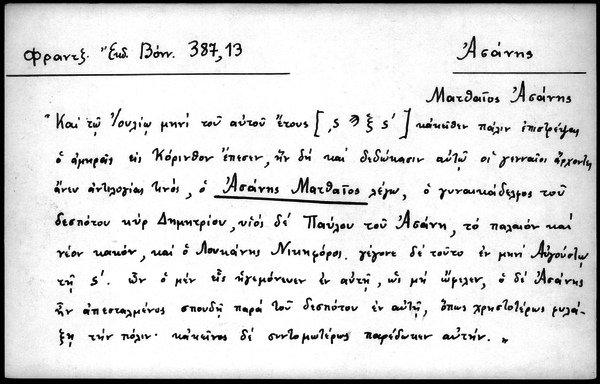 Φραντζ. Ἔκδ. Βόνν. 387,13
Ἀσάνης
Ματθαῖος Ἀσάνης
"Καὶ τῷ Ἰουλίῳ μηνί τοῦ αὐτοῦ ἔτους [͵ϛ ϡ ξ ϛ´] κἀκεῖθεν πάλιν ἐπιστρέψας
ὁ ἀμηρᾶς εἰς Κόρινθον ἔπεσεν, ἥν δή καί δεδώκασιν αὐτῷ οἱ γενναῖοι ἄρχοντες
ἄνευ ἀντιλογίας τινός, ὁ Ἀσάνης Ματθαῖος λέγω, ὁ γυναικάδελφος τοῦ
δεσπότου κύρ Δημητρίου, υἱός δέ Παύλου τοῦ Ἀσάνη, τό παλαιόν καί
νέον κακόν, καί ὁ Λουκάνης Νικηφόρος. γέγονε δέ τοῦτο ἐν μηνί Αὐγούστῳ
τῇ ϛ´. ὧν ὁ μέν εἷς ἡγεμόνευεν ἐν αὐτῇ, ὡς μή ὤφελεν, ὁ δέ Ἀσάνης
ἦν ἀπεσταλμένος σπουδῇ παρά τοῦ δεσπότου ἐν αὐτῇ, ὅπως χρηστοτέρως φυλά-
ξῃ τήν πόλιν· κἀκεῖνος δέ συντομωτέρως παρέδωκεν αὐτήν. "